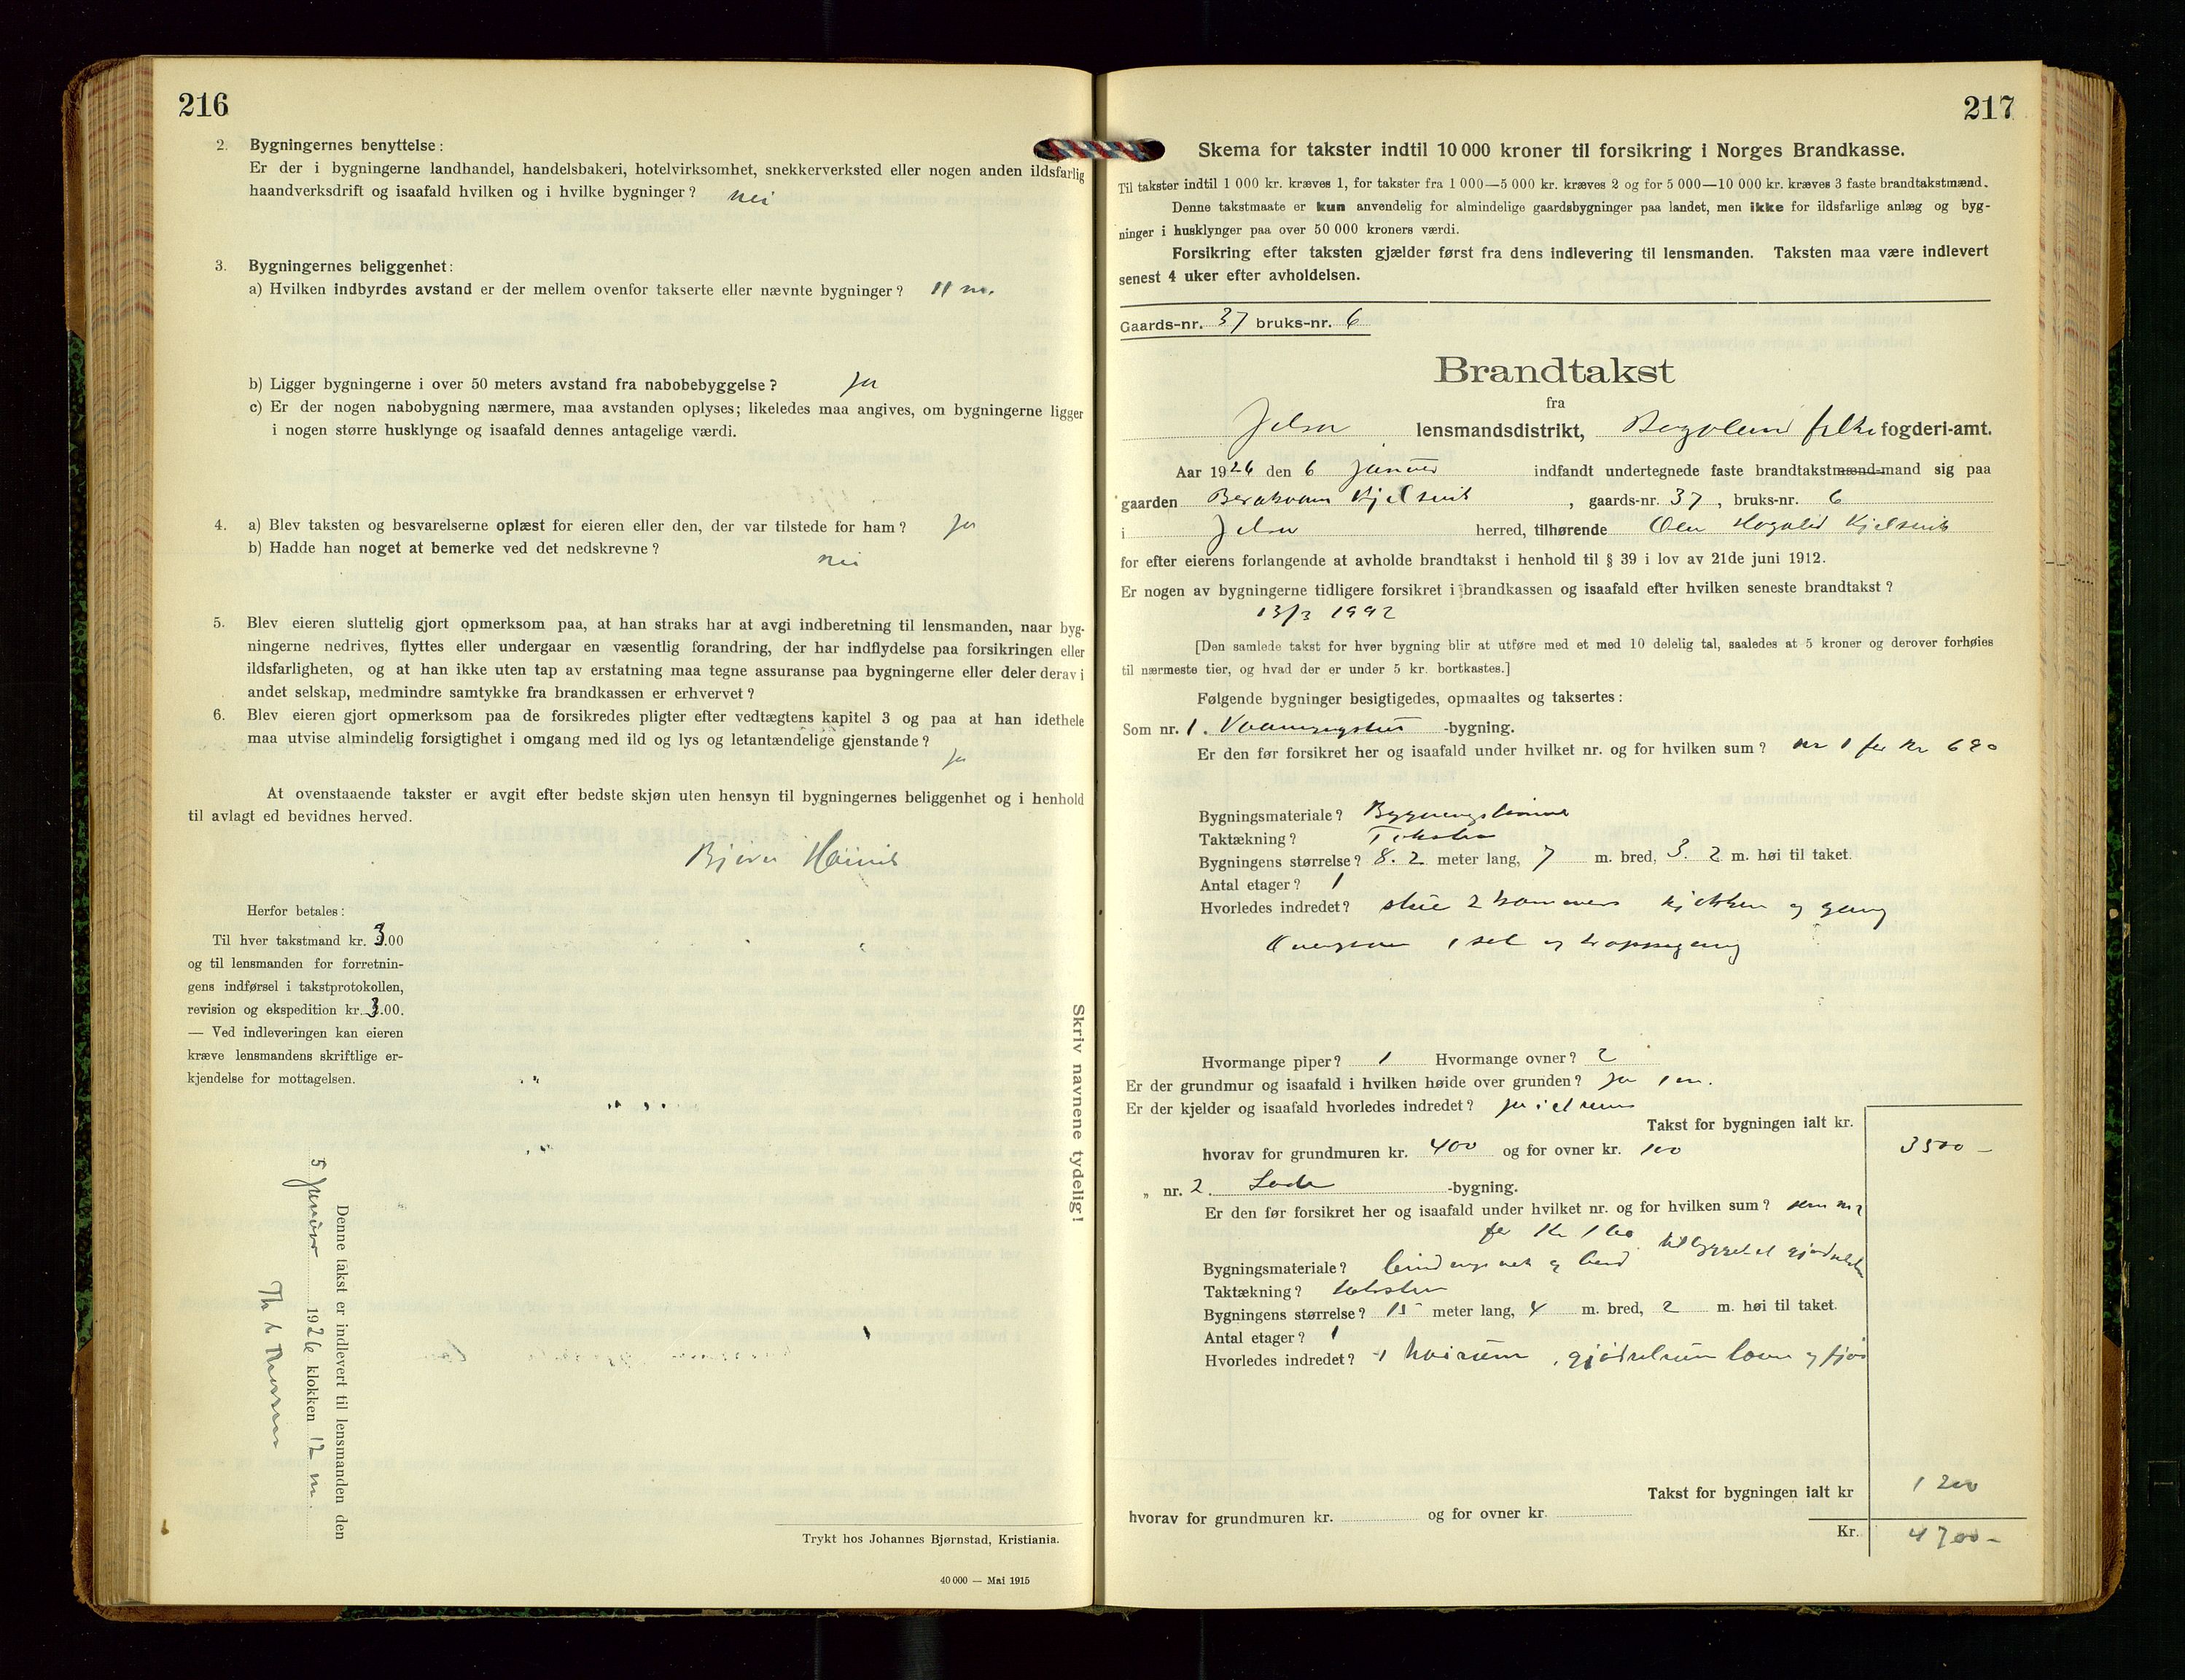 216
2. Bygningernes benyttelse:
Er der i bygningerne landhandel, handelsbakeri, hotelvirksomhet, snekkerverksted eller nogen anden ildsfarlig
haandverksdrift og isaafald hvilken og i hvilke bygninger? nei
3. Bygningernes beliggenhet:
a) Hvilken indbyrdes avstand er der mellem ovenfor takserte eller nævnte bygninger? 11 m.
b) Ligger bygningerne i over 50 meters avstand fra nabobebyggelse? ja
c) Er der nogen nabobygning nærmere, maa avstanden oplyses; likeledes maa angives, om bygningerne ligger
i nogen større husklynge og isaafald dennes antagelige værdi.
4. a) Blev taksten og besvarelserne oplæst for eieren eller den, der var tilstede for ham? ja
b) Hadde han noget at bemerke ved det nedskrevne?
nei
5. Blev eieren sluttelig gjort opmerksom paa, at han straks har at avgi indberetning til lensmanden, naar byg-
ningerne nedrives, flyttes eller undergaar en væsentlig forandring, der har indflydelse paa forsikringen eller
ildsfarligheten, og at han ikke uten tap av erstatning maa tegne assuranse paa bygningerne eller deler derav i
andet selskap, medmindre samtykke fra brandkassen er erhvervet?
6. Blev eieren gjort opmerksom paa de forsikredes pligter efter vedtægtens kapitel 3 og paa at han idethele
maa utvise almindelig forsigtighet i omgang med ild og lys og letantændelige gjenstande?
ja
At ovenstaaende takster er avgit efter bedste skjøn uten hensyn til bygningernes beliggenhet og i henhold
til avlagt ed bevidnes herved.
Herfor betales:
Til hver takstmand kr. 3.00
og til lensmanden for forretnin-
gens indførsel i takstprotokollen,
revision og ekspedition kr. 3.00.
— Ved indleveringen kan eieren
kræve lensmandens skriftlige er-
kjendelse for mottagelsen.
Denne takst er indlevert til lensmanden den
5 Januar 1926 klokken 12 m.
Skriv navnene tydelig!
Trykt hos Johannes Bjørnstad, Kristiania.
40 000 — Mai 1915
217
Skema for takster indtil 10 000 kroner til forsikring i Norges Brandkasse.
Til takster indtil 1 000 kr. kræves 1, for takster fra 1 000—5 000 kr. kræves 2 og for 5 000—10 000 kr. kræves 3 faste brandtakstmænd.
Denne takstmaate er kun anvendelig for almindelige gaardsbygninger paa landet, men ikke for ildsfarlige anlæg og byg-
ninger i husklynger paa over 50 000 kroners værdi.
Forsikring efter taksten gjælder først fra dens indlevering til lensmanden. Taksten maa være indlevert
senest 4 uker efter avholdelsen.
Gaards-nr. 37 bruks-nr. 6
Brandtakst
fra
Jelsa lensmandsdistrikt, Rogaland fylke fogderi-amt.
Aar 1926 den 6 Januar indfandt undertegnede faste brandtakstmænd-mand sig paa
gaarden Kjelsvik, gaards-nr. 37, bruks-nr. 6
i Jelsa herred, tilhørende Kjelsvik
for efter eierens forlangende at avholde brandtakst i henhold til § 39 i lov av 21de juni 1912.
Er nogen av bygningerne tidligere forsikret i brandkassen og isaafald efter hvilken seneste brandtakst?
[Den samlede takst for hver bygning blir at utføre med et med 10 delelig tal, saaledes at 5 kroner og derover forhøies
til nærmeste tier, og hvad der er under 5 kr. bortkastes.]
Følgende bygninger besigtigedes, opmaaltes og taksertes:
Som nr. 1. Vaaningshus -bygning.
Er den før forsikret her og isaafald under hvilket nr. og for hvilken sum? nr 1 for Kr 690
Bygningsmateriale? Bygningstømmer
Taktækning? Taksten
Bygningens størrelse? 8.2 meter lang, 7 m. bred, 3.2 m. høi til taket.
Antal etager? 1
Hvorledes indredet? stue 2 kammers kjøkken og gang
1 sal og trappegang
Hvormange piper? 1 Hvormange ovner? 2
Er der grundmur og isaafald i hvilken høide over grunden? ja 1 m.
Er der kjelder og isaafald hvorledes indredet? ja i et rum
Takst for bygningen ialt kr.
hvorav for grundmuren kr. 400 og for ovner kr. 100 3500 –
„ nr. 2. Lade -bygning.
Er den før forsikret her og isaafald under hvilket nr. og for hvilken sum? som nr 2
for Kr 160 tilbygget et
Bygningsmateriale? bindingsverk og bord
Taktækning? taksten
Bygningens størrelse? 15 meter lang, 4 m. bred, 2 m. høi til taket.
Antal etager? 1
Hvorledes indredet? 1 høirum, gjødselrum og
Takst for bygningen ialt kr 1200
hvorav for grundmuren kr. og for ovner kr.
Kr. 4700 –